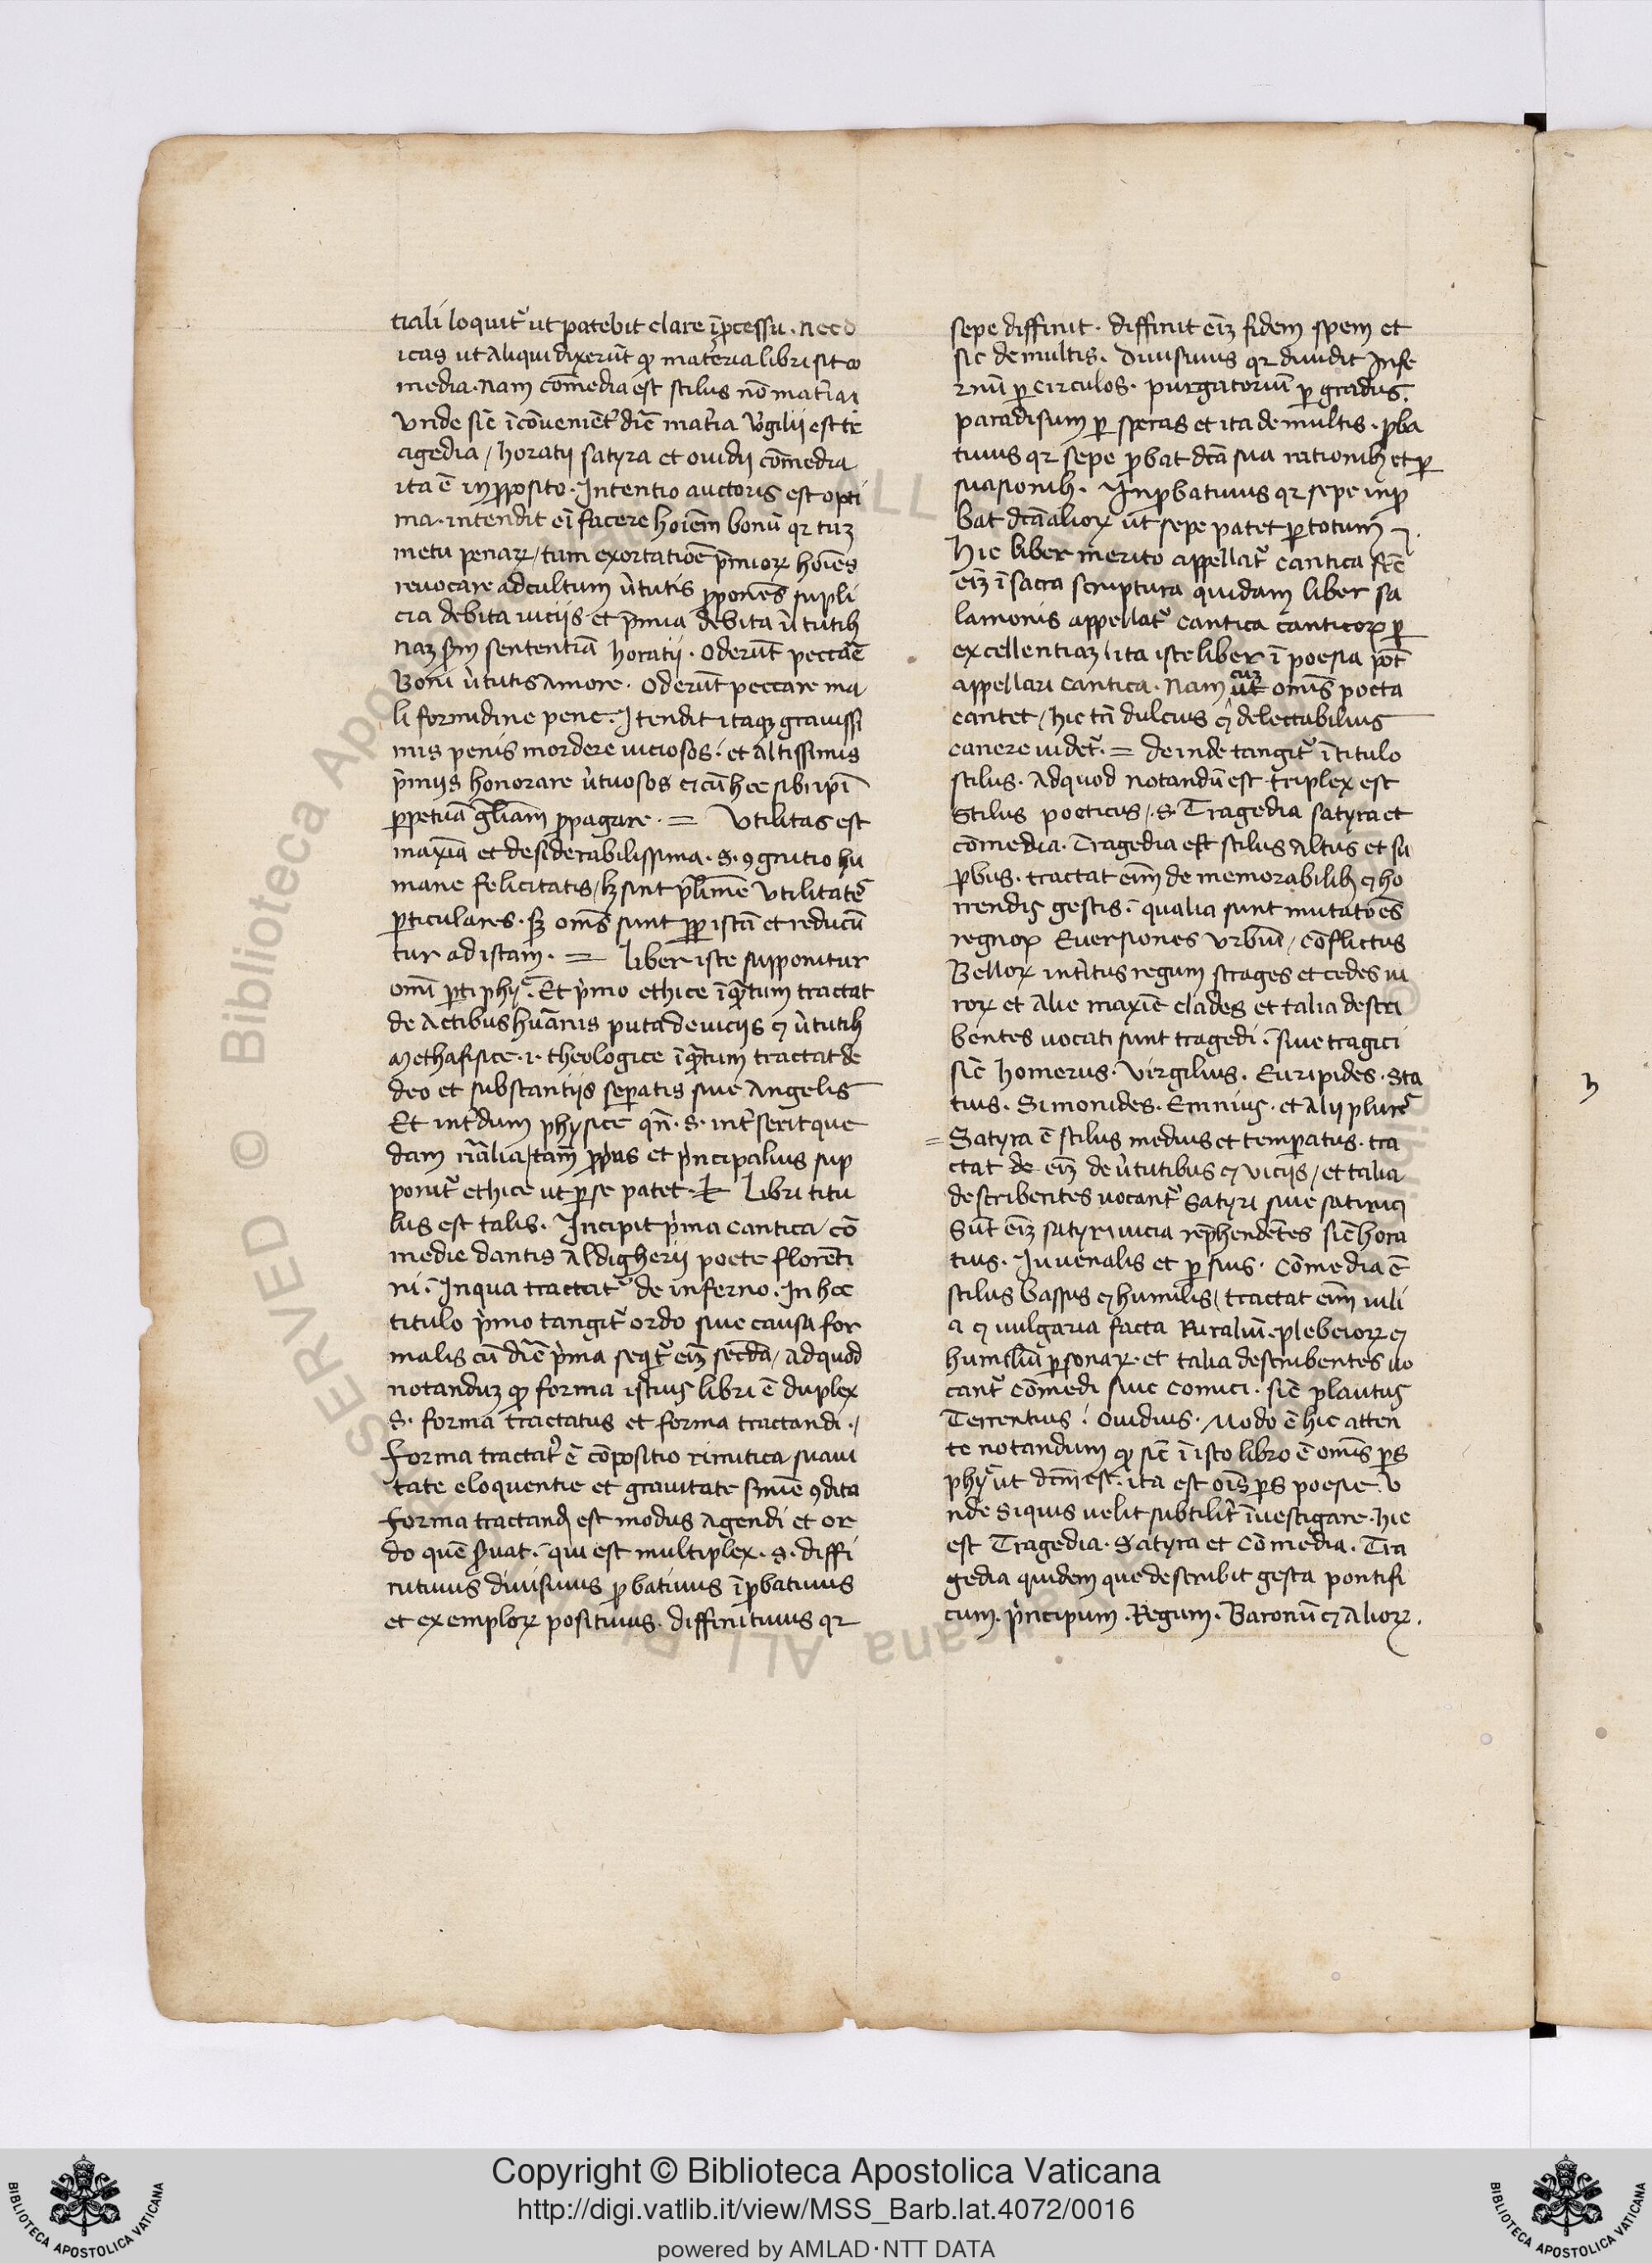 tiali loquit᷑ ut patebit clare ī ꝓcessu. nec d
icas ut aliqui dixerūt ꝙ materia libri sit co
media. nam com̄edia est scilus nō mat̄ia
Vnde sic̄ īcōvenienṫ dic̄ mat̄ia v̓gilii est tr
agedia / horatii satyra et ovidii com̄edia
ita ē in ꝓposito. Intentio auctoris est opti
ma. intendit ei̅ facere hoiem̄ bonū qr tuꝫ
metu penaꝝ / tum exortatiōe p̄mioꝝ hoīes
revocare ad cultum v̓tutis ꝓponēs supli
cia debita viciis et p̄mia debita v̓tutibꝫ
naꝫ scd̄m sententiā horatii. Oderūt peccāe
Boni v̓tutis amore. Oderūt peccare ma
li formidine pene. Itendit itaqꝫ gravissi
mis penis mordere viciosos: et altissimis
p̄miis honorare v̓tuosos ⁊ cū hec sibi ipī
ꝑpetuā gl̄iam ꝓpagare. = Vtilitas est
maxīa et desiderabilissima. S. ꝯgnitio hu
mane felicitatis / lꝫ sint pl̄imē vtilitateᷤ
ꝑticulares. sꝫ om̄s sunt ꝓpꝑ istā et reducū
tur ad istam. = Liber iste supponitur
omī ꝑti phyᷤ. Et p̓mo ethice īqᷓtum tractat
de Actibus huānis puta de viciis ⁊ v̓tutibꝫ
Methafisice .i. theologice īqᷓtum tractat de
deo et substantiis seꝑatis sive Angelis
Et int̓dum physice qn̄. S. int̓serit que
dam nālia / tam̄ ꝓpius et p̓ncipalius sup
ponit᷑ ethice ut ꝑ se patet. Libri titu
lus est talis. Incipit p̓ma cantica / cō
medie dantis Aldigherii poete florēti
ni. In qua tractat᷑ de inferno. In hec
titulo p̓mo tangit᷑ ordo sive causa for
malis cū dic̄ p̓ma seqit᷑ eiꝫ secd̄a / ad quod
notanduꝫ ꝙ forma istius libri ē duplex
S. forma tractatus et forma tractandi. /
Forma tractat᷒ ē cōpositio rimitica suavi
tate eloquentie et gravitate snīe ꝯdita
Forma tractandi est modus agendi et or
do quē s̓vat. qui est multiplex. S. diffi
nitivus divisivus ꝓbativus īꝓbativus
et exemploꝝ positivus. diffinitivus qr
sepe diffinit. diffinit eiꝫ fidem spem et
sic de multis. Divisivus qr dividit Infe
rnū ꝑ circulos. purgatoriū ꝑ gradus.
paradisum ꝑ speras et ita de multis. ꝓba
tivus qr sepe ꝓbat dcā sua rationibꝫ et ꝑ
suasionibꝫ. Inꝓbativus qr sepe inꝓ
bat dcā alioꝝ ut sepe patet ꝑ totum
Hic liber merito appellat᷑ cantica
eiꝫ ī sacra scriptura quidam liber sa
lamonis appellat᷑ cantica canticoꝝ ꝑ
excellentiaꝫ / ita iste liber ī poesia pōt
appellari cantica. Nam ut cuꝫ omīs poeta
cantet / hic tn̄ dulcius ⁊ delectabilius
canere videt᷑. = deinde tangit᷑ ī titulo
stilus. Ad quod notandū est triplex est
Stilus poeticus /. S. Tragedia satyra et
cōmedia. Tragedia est stilus altus et su
ꝑbus. tractat eim̄ de memorabilibꝫ ⁊ ho
rrendis gestis. qualia sunt mutatōes
regnoꝝ Eversiones vrbiū / cōflictus
Belloꝝ int̓itus regum strages et cedes vi
roꝝ et alie maxīe clades et talia descri
bentes vocati sunt tragedi. sive tragici
sic̄ homerus. Virgilius. Euripides. Sta
tius. Simonides. Ennius. et Alii plureᷤ
= Satyra ē stilus medius et temꝑatus. tra
ctat de eiꝫ de v̓tutibus ⁊ viciis / et talia
describentes vocant᷑ Satyri sive satirici
Sūt eiꝫ satyri vicia rep̄hendētes sic̄ hora
tius. Iuvenalis et ꝑsius. Cōmedia ē
stilus bassus ⁊ humilis / tractat eim̄ vili
a ⁊ vulgaria facta Ruraliū. plebeioꝝ ⁊
humiliū ꝑsonaꝝ. et talia describentes vo
cant᷑ Cōmedi sive comici. sic̄ plautus
Terrentius. Ovidius. Modo ē hic atten
te notandum ꝙ sic̄ ī isto libro ē omīs ꝑs
phyᷤ ut dcm̄ est. ita est oīs ꝑs poesie. v
nde si quis velit subtilit̓ īvestigare. hic
est Tragedia. Satyra et Cōmedia. Tra
gedia quidem que describit gesta pontifi
cum. p̓ncipum. Regum. Baronū ⁊ alioꝝ.
3
Copyright © Biblioteca Apostolica Vaticana
http://digi.vatlib.it/view/MSS_Barb.lat.4072/0016
powered by AMLAD·NTT DATA